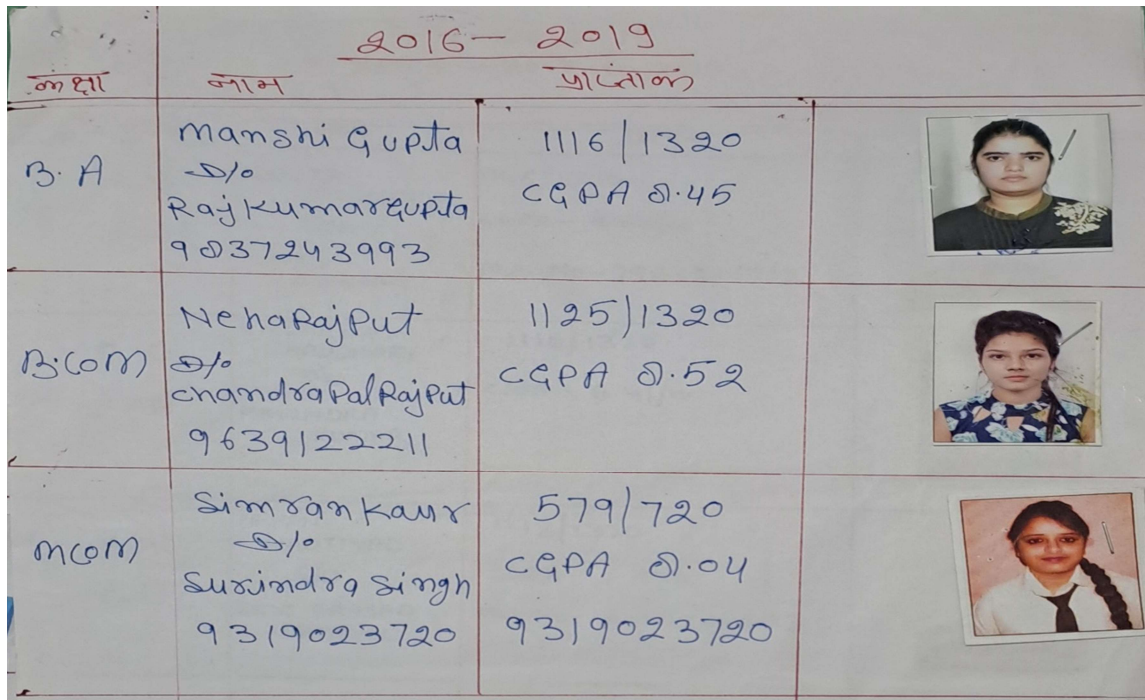 2016 - 2019
कक्षा नाम प्राप्तांक
B.A
Manshi Gupta
D/o
Raj Kumar Gupta
9837243993
1116/1320
CGPA 8.45
B.COM
Neha Rajput
D/o
Chandra Pal Rajput
9639122211
1125/1320
CGPA 8.52
MCOM
Simran Kaur
D/o
Surindra Singh
9319023720
579/720
CGPA 8.04
9319023720